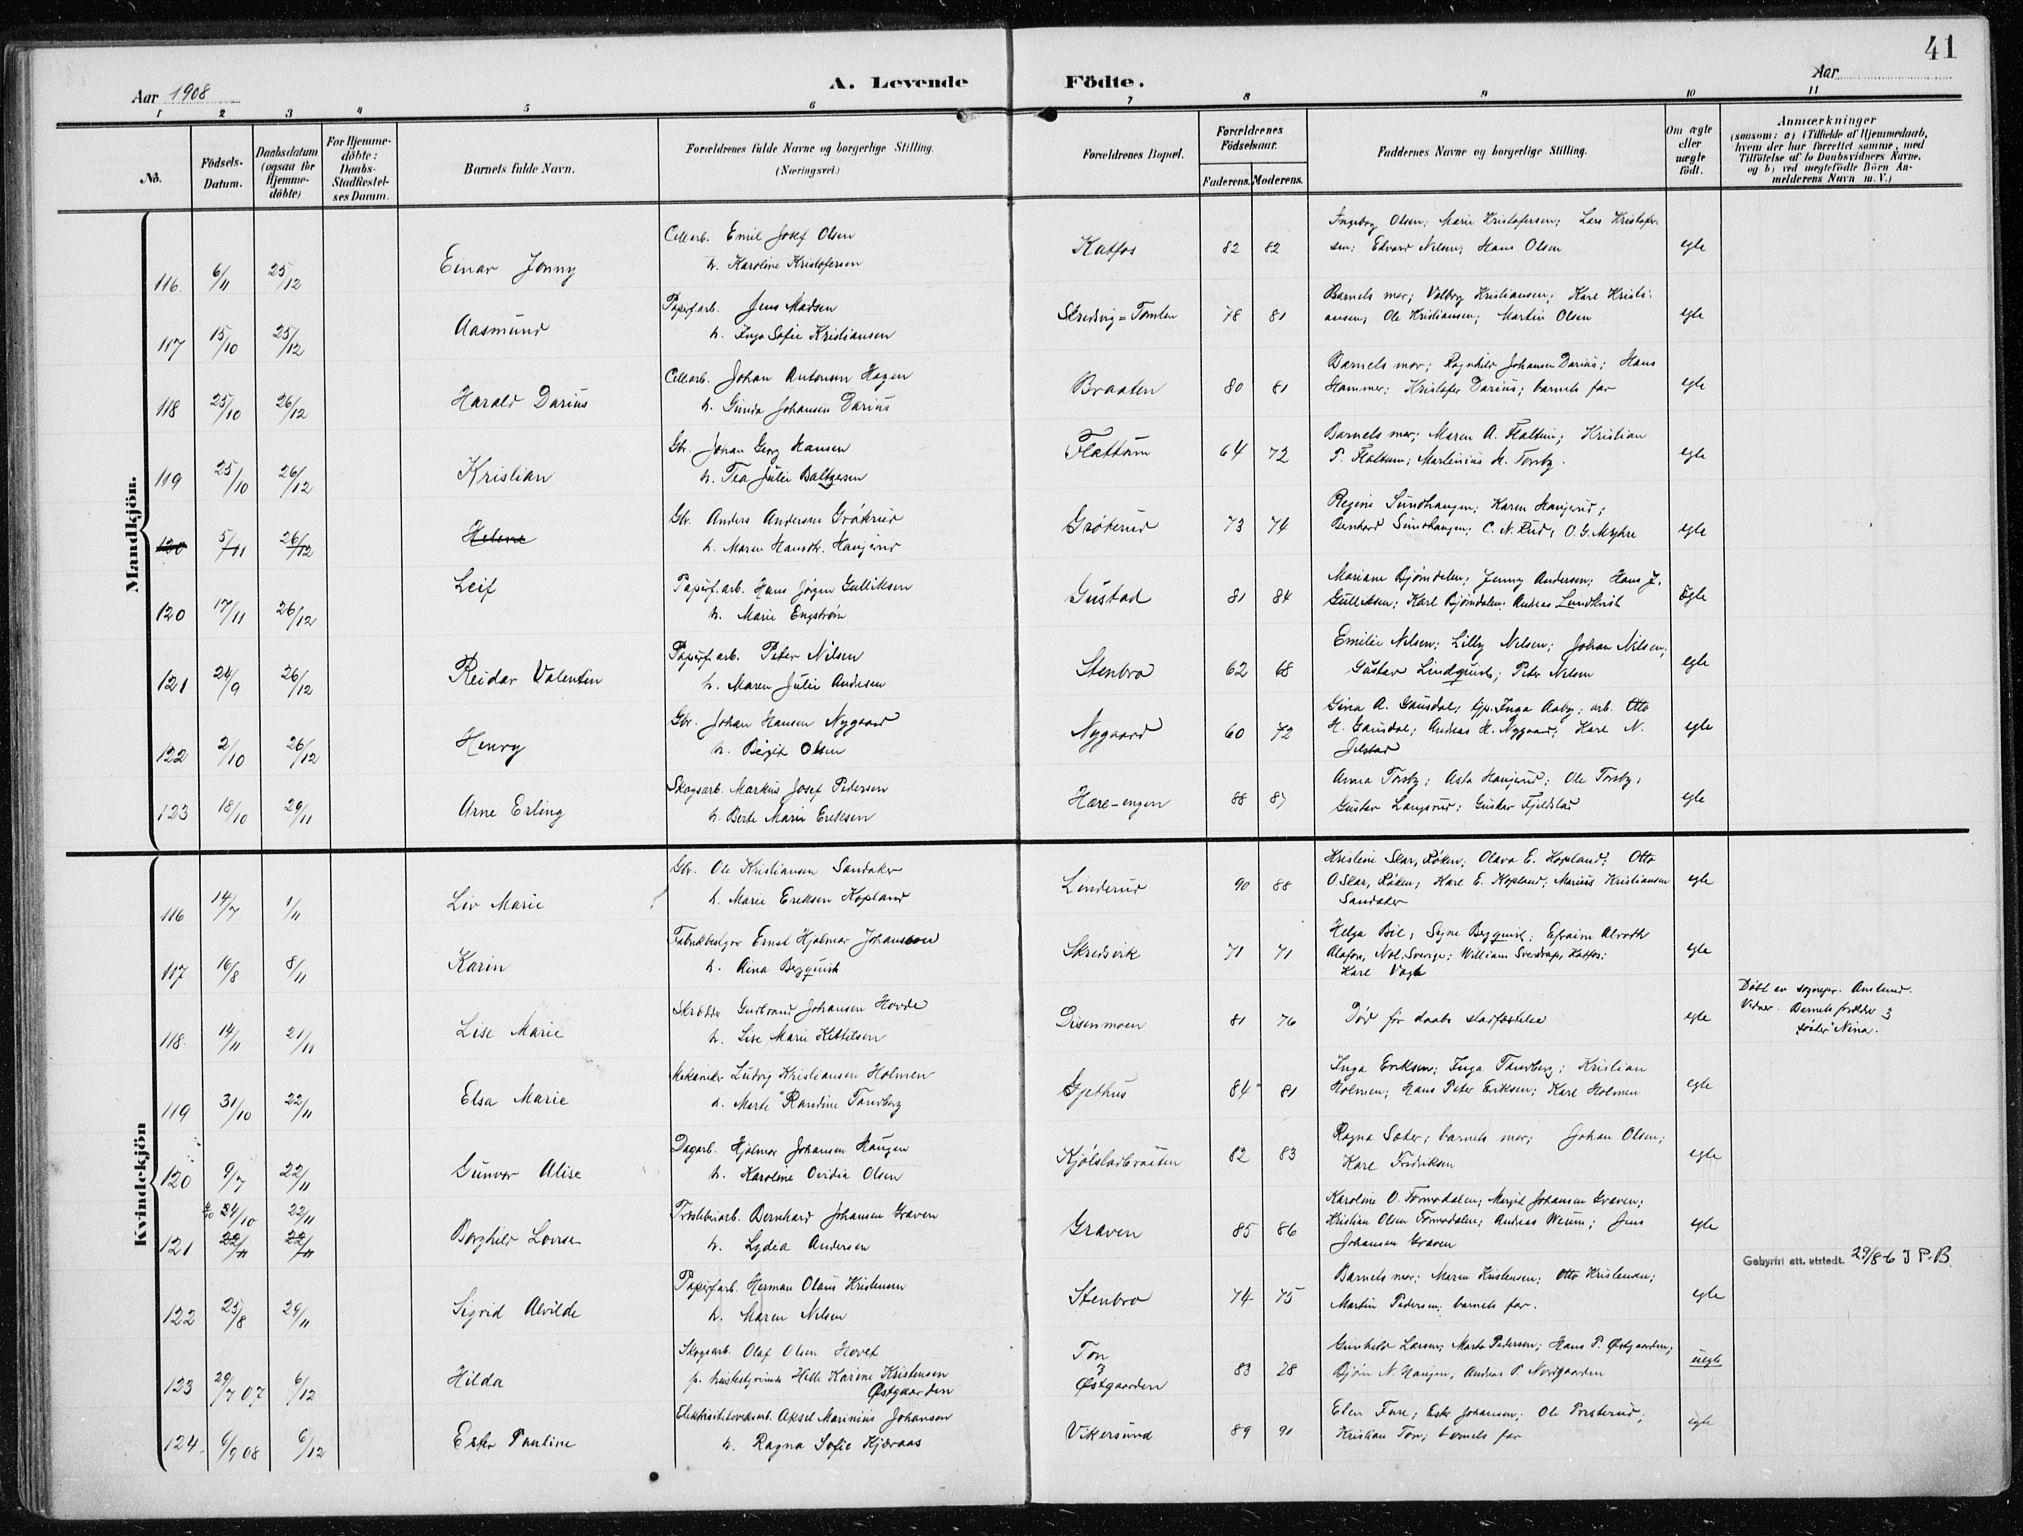 41
Aar 1908
A. Levende Födte.
Aar
1 2 3 4 5 6 7 8 9 10 11
No.
Födsels-Datum.
Daabsdatum (ogsaa for Hjemme-döbte)
For Hjemme-döbte: Daabs-Stadfæstel-ses Datum.
Barnets fulde Navn.
Forældrenes fulde Navne og borgerlige Stilling. (Næringsvei.)
Forældrenes Bopæl.
Forældrenes Födselsaar.
Faderens. Moderens.
Faddernes Navne og borgerlige Stilling.
Om ægte eller uægte födt.
Anmærkninger
(saasom: a) i Tilfælde af Hjemmedaab, hvem der har forrettet samme, med Tilföielse af to Daabsvidners Navne, og b) ved uægtefödte Börn An-melderens Navn m. V.)
Mandkjön.
116. 6/11 25/12 Einar Jonny
Cell.arb. Emil Josef Olsen
h. Karoline Kristofersen
Katfos 82 82
Ingeborg Olsen; Marie Kristofersen; Lars Kristofer-
sen; Edvard Nilsen; Hans Olsen
egte
117 15/10 25/12 Aasmund
Papirf.arb. Jens Madsen
h. Inga Sofie Kristiansen
Skredvig=Tomten 78 81
Barnets mor; Valborg Kristiansen; Karl Kristi-
ansen; Ole Kristiansen; Martin Olsen
egte
118 25/10 26/12 Harald Darius
Cell.arb. Johan Antonsen Hagen
h. Gunda Johansen Darius
Braaten 80 81
Barnets mor; Ragnhild Johansen Darius; Hans
Hammer; Kristofer Darius; barnets far
egte
119 25/10 26/12 Kristian
Gbr. Johan Georg Hansen
h. Tea Julie Baltzersen
Flattum 64 72
Barnets mor; Maren A. Flattum; Kristian
P. Flattum; Martinius H. Torsby.
egte
120 5/11 26/12 Helene
Gbr. Anders Andersen Grøterud
h. Maren Hansdtr. Haugerud
Grøterud 73 74
Regine Sundhaugen; Karen Haugerud;
Bernhard Sundhaugen; C. N. Rud; O. G. Myhre
egte
120 17/11 26/12 Leif
Papirf.arb. Hans Jørgen Gulliksen
h. Marie Engstrøm
Gustad 81 84
Mariane Bjørndalen; Jenny Andersen; Hans J.
Gulliksen; Karl Bjørndalen; Andreas Lundkvist
Egte
121 24/9 26/12 Reidar Valentin
Papirf.arb. Peter Nilsen
h. Maren Julie Andersen
Stenbro 62 68
Emilie Nilsen; Lilly Nilsen; Johan Nilsen;
Gustav Lindquist; Peter Nilsen
egte
122 2/10 26/12 Henry
Gbr. Johan Hansen Nygaard
h. Birgit Olsen
Nygaard 60 72
Gina A. Gausdal; tjp. Inga Aaby; arb. Otto
H. Gausdal; Andreas H. Nygaard; Karl N.
Jelstad
egte
123 18/10 29/11 Arne Erling
Skogsarb. Markus Josef Pedersen
h. Berte Marie Eriksen
Hære-engen 88 87
Anna Torsby; Asta Haugerud; Ole Torsby;
Gustav Langerud; Gustav Fjeldstad
egte
Kvindekjön
116 14/7 1/11 Liv Marie
Gbr. Ole Kristiansen Sandaker
h. Marie Eriksen Kopland
Linderud 90 88
Kristine Skar, Røken; Olava E. Kopland; Otto
O. Skar, Røken; Karl E. Kopland; Marius Kristiansen
Sandaker
egte
117 16/8 8/11 Karin
Fabrikbestyrer Ernst Hjalmar Johansson
h. Aina Bergquist
Skredsvik 71 71
Helga Bie; Signe Bergquist; Efraim Alroth
Alafors, Nol, Sverige; William Sverdrup, Katfos;
Karl Vogt
egte
118. 14/11 21/11 Lise Marie
Skrædder Gudbrand Johansen Hovde
h. Lise Marie Kittilsen
Disenmoen 81 76
Død før daabs stadfæstelse
egte
Døbt av sognepr. Amlund.
Vidner Barnets forældre &
søster Nina.
119 31/10 22/11 Elsa Marie
Mekaniker Ludvig Kristiansen Holmen
h. Marte Randine Tandberg
Gjethus 84 81
Inga Eriksen; Inga Tandberg; Kristian
Holmen; Hans Peter Eriksen; Karl Holmen
egte
120 9/7 22/11 Gunvor Alise
Dagarb. Hjalmar Johansen Haugen
h. Karoline Ovidia Olsen
Kjølstadbraaten 82 83
Ragna Sæter; barnets mor; Johan Olsen;
Karl Fredriksen
egte
121 24/10 22/11 Borghild Lovise
22/11 22/11
Træsliberiarb. Bernhard Johansen Graven
h. Lydia Andersen
Graven 85 86
Karoline O. Tormodalen; Margit Johansen Graven;
Kristian Olsen Tormodalen; Andreas Weum; Jens
Johansen Graven
egte
Gebyrfri att. utstedt. 29/8-63 P.B
122 25/8 29/11 Sigrid Alvilde
Papirf.arb. Herman Olaus Kristensen
h. Maren Nilsen
Stenbro 74 75
Barnets mor; Maren Kristensen; Otto Kristensen;
Martin Pedersen; barnets far.
egte
123 29/7 07 6/12 Hilda
Skogsarb. Olaf Olsen Hovet
p. husbestyrinde Helle Karine Kristensen
Østgaarden
Ton
&
Østgaarden 83 78
Gunhild Larsen; Marte Pedersen; Hans P. Østgaarden;
Bjørn N. Haugen; Andreas P. Nordgaarden
uegte
124. 6/9 08 6/12 Ester Pauline
Elektricitetsverksarb. Aksel Marinius Johansen
h. Ragna Sofie Kjæraas
Vikersund 89 91
Elen Fure; Ester Johansen; Ole Presterud;
Kristian Ton; barnets far
egte